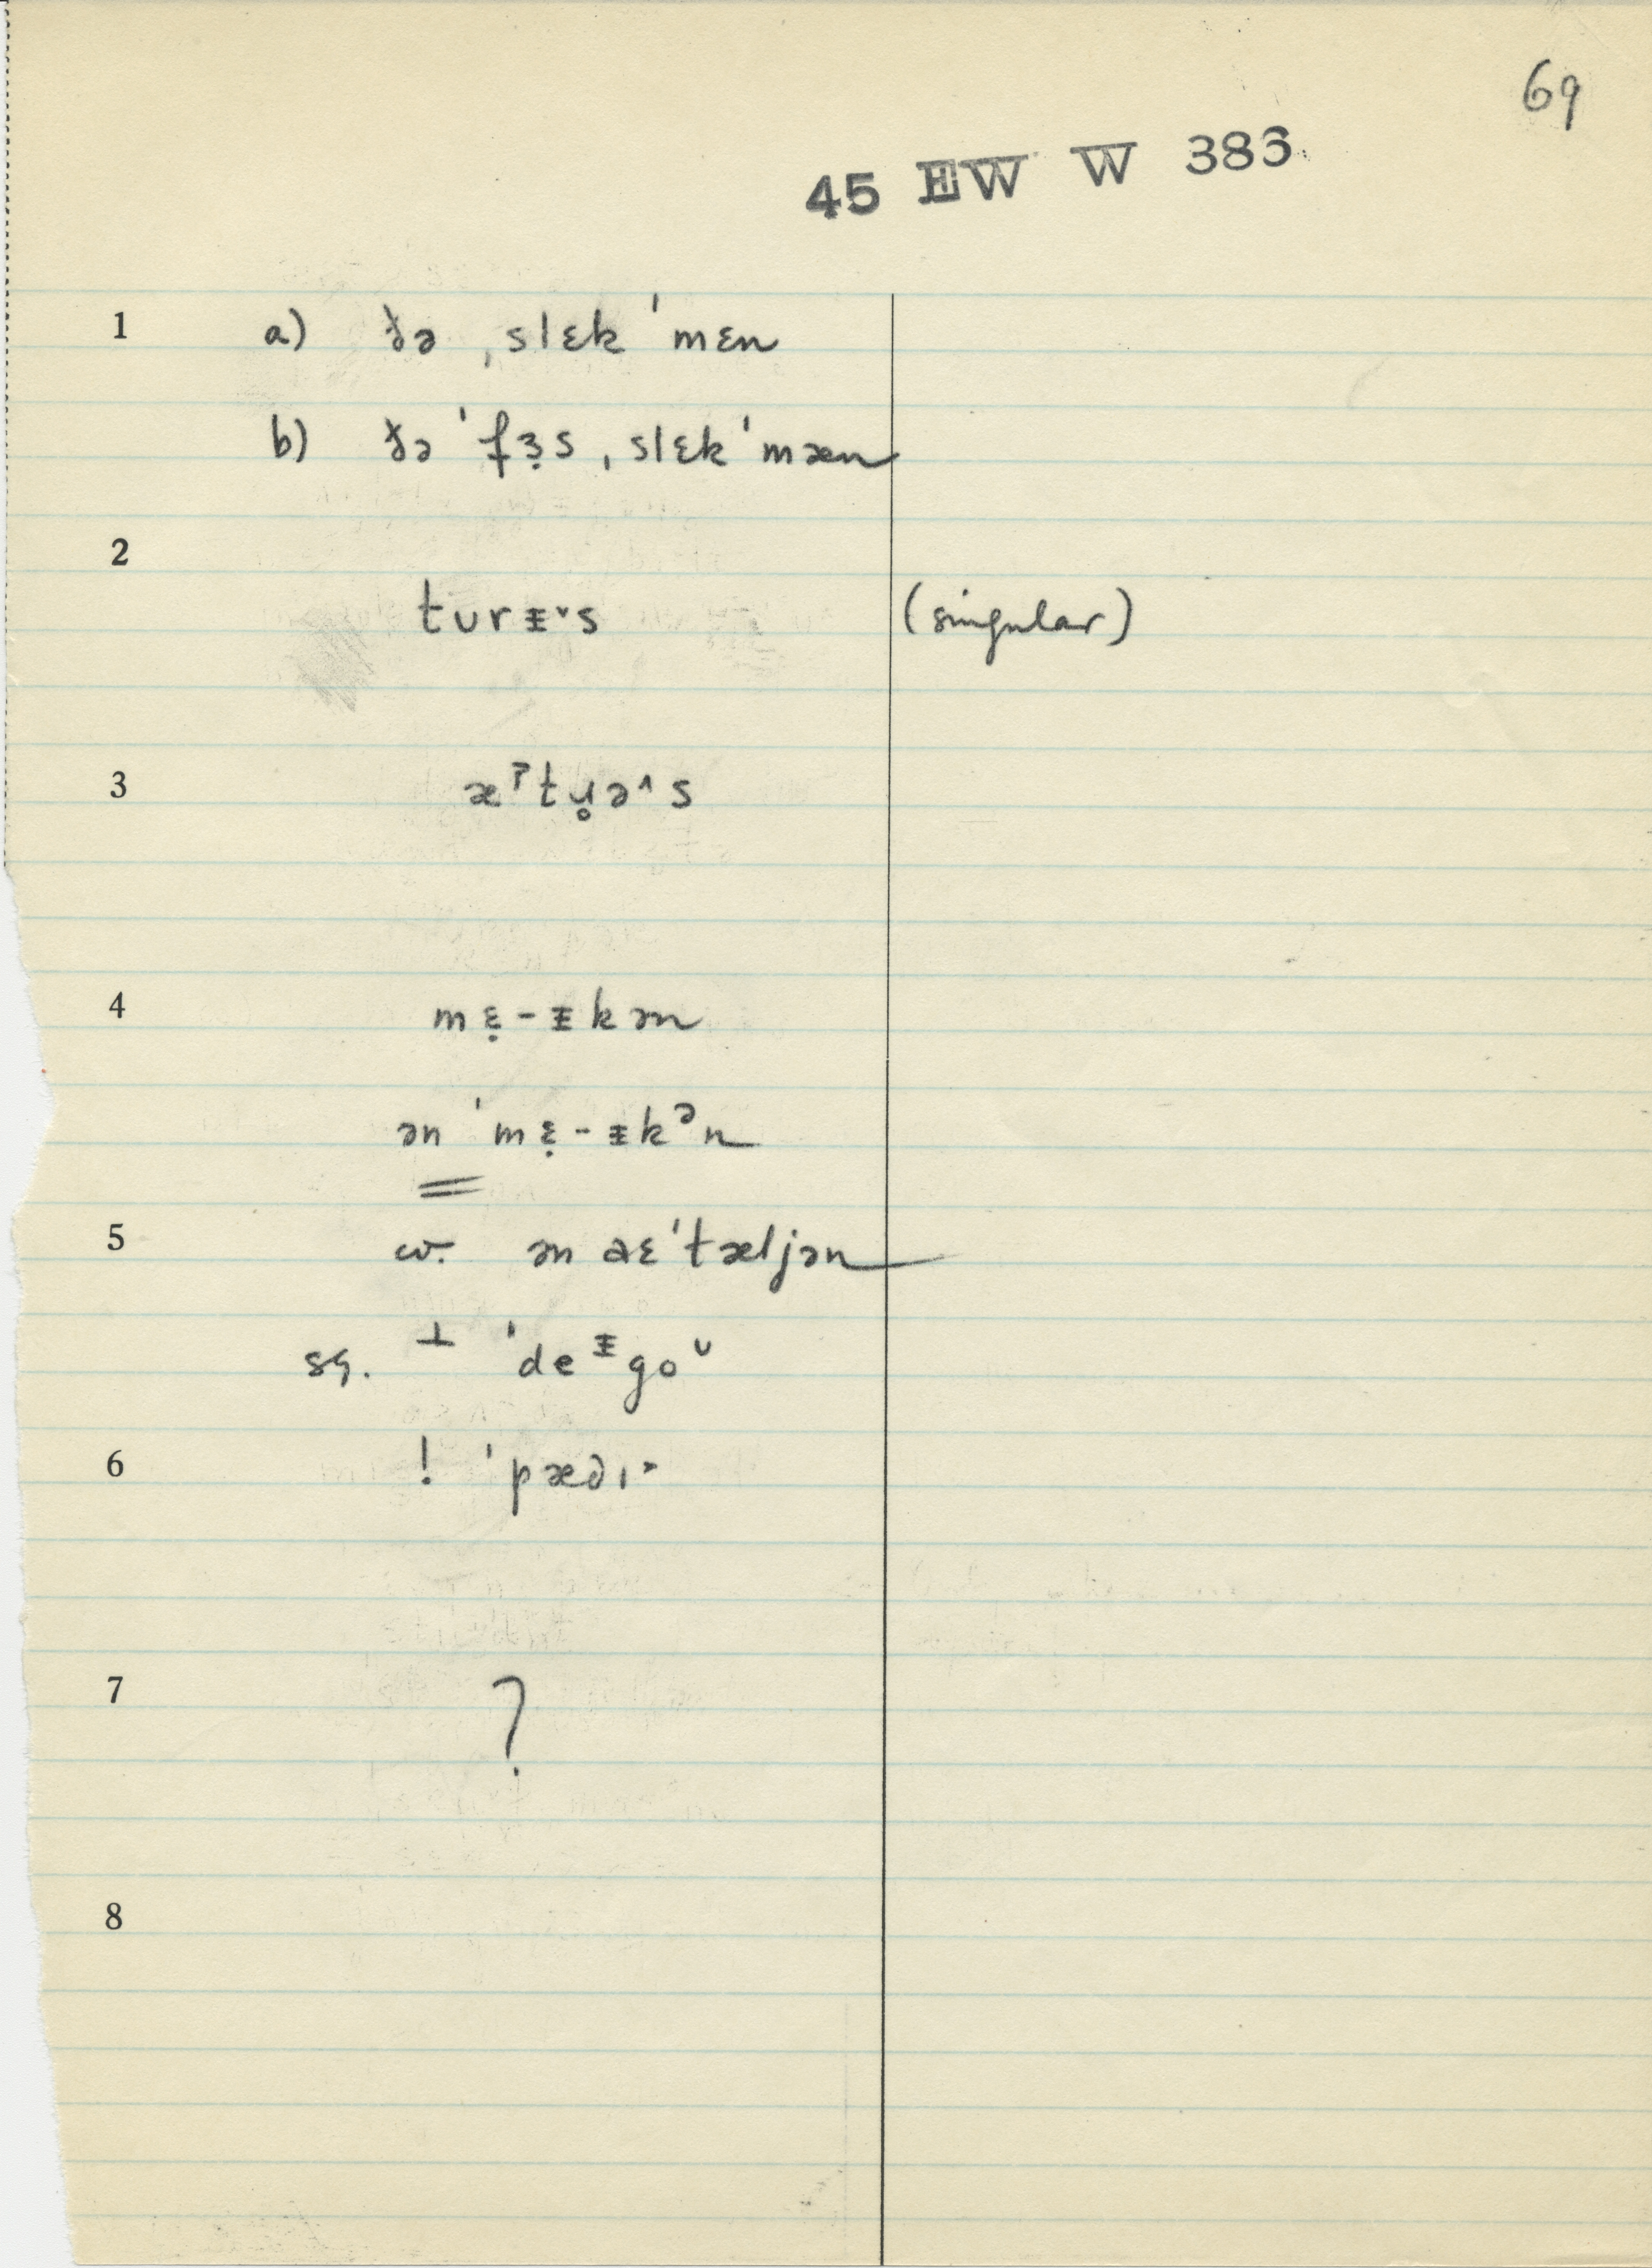 69
45 EW W 386
1 a) ðə ˌslɛk ˈmɛn
b) ðə ˈfɜ̣s ˌslɛkˈmæn
2
tʊrᵻ˅s (singular)
3 æˀtɹ̥ə˄s
4 mɛ̣-ᵻkən
ən ˈmɛ̣-ᵻkᵊn
5 w. ən aɛˈtæljən
sq. ⊥ ˈdeᵻgoᶷ
6 ! ˈpædɪ˃
7 ?
8